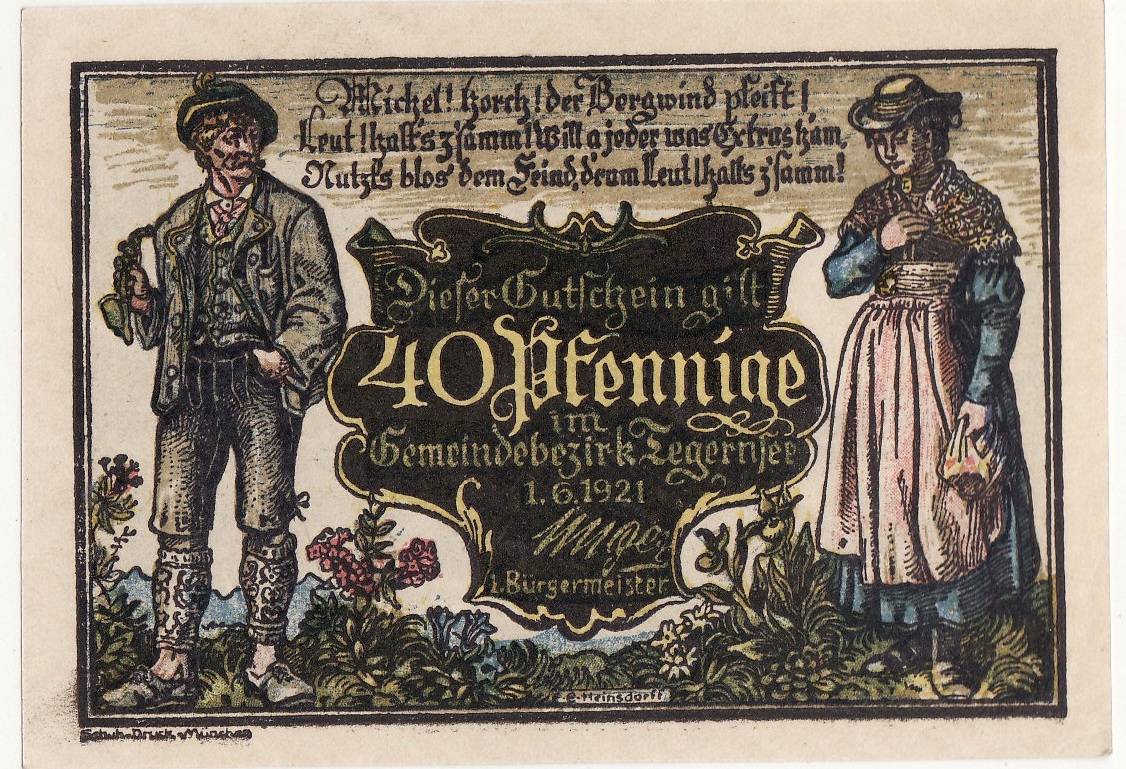 Mickel! horch! der Bergwind pfeift!
Leut! halt's z'samm! Will a jeder was Extras ham,
Nutzt's blos dem Feind, drum Leut! halts z'samm!
Dieser Gutschein gilt
40 Pfennige
im
Gemeindebezirk Tegernsee
1.6.1921
1. Bürgermeister
E. Heinsdorff
Schuh-Druck, München